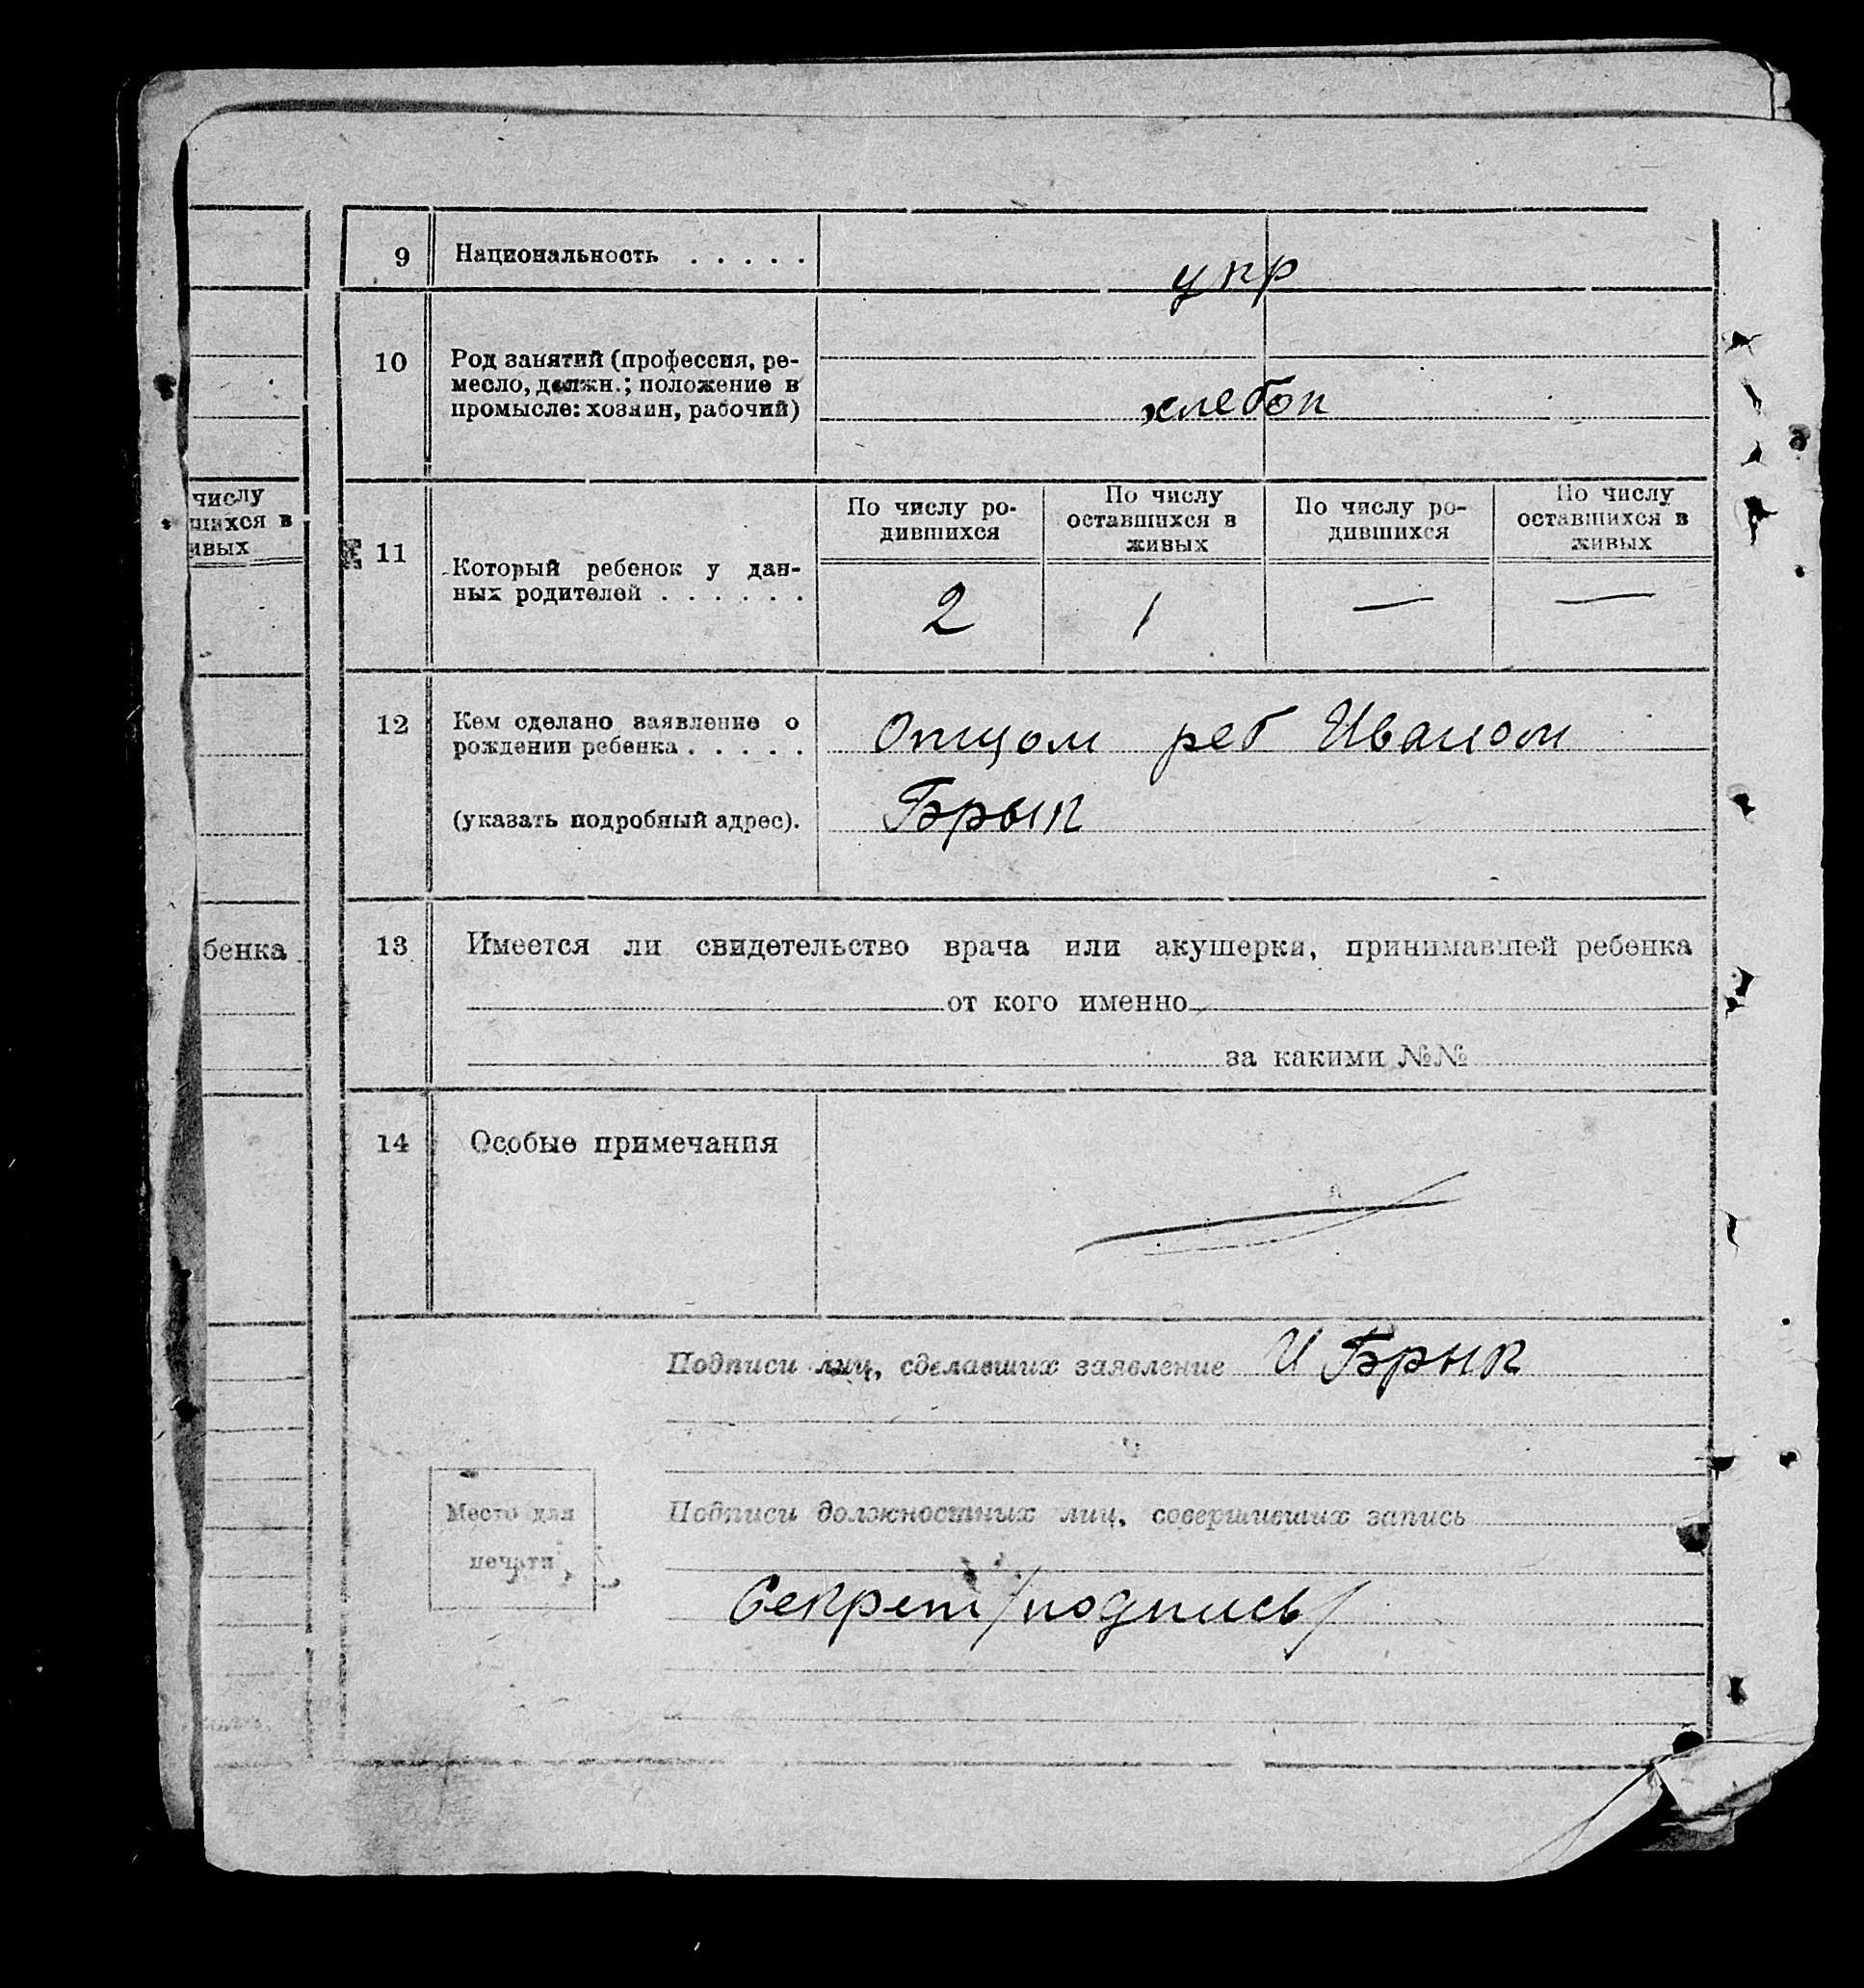 числу
шихся в
ивых
бенка
9 Национальность . . . . . укр
10 Род занятий (профессия, ре-
месло, должн.; положение в
промысле: хозяин, рабочий)
хлебоп
11 Который ребенок у дан-
ных родителей . . . . . .
По числу ро-
дившихся
По числу
оставшихся в
живых
По числу ро-
дившихся
По числу
оставшихся в
живых
2 1 — —
12 Кем сделано заявление о
рождении ребенка . . . . .
(указать подробный адрес).
Отцом реб Иваном
Брык
13 Имеется ли свидетельство врача или акушерки, принимавшей ребенка
от кого именно
за какими №№
14 Особые примечания
Подписи лиц, сделавших заявление И Брык
Место для
печати
Подписи должностных лиц, совершивших запись
Секрет /подпись/